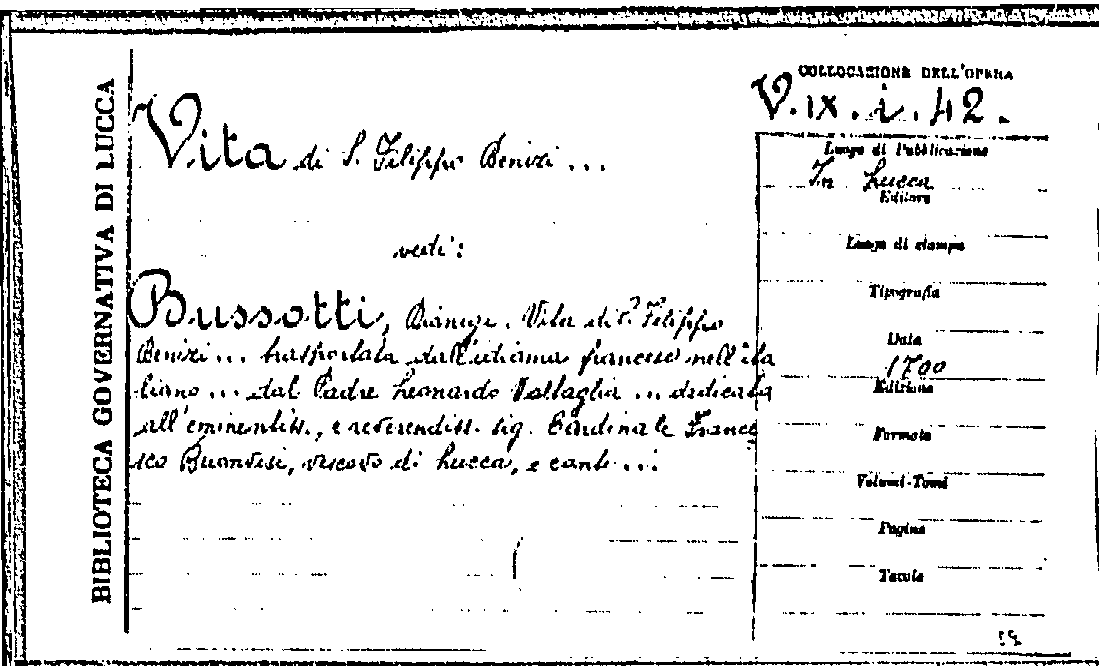 BIBLIOTECA GOVERNATIVA DI LUCCA
COLLOCAZIONE DELL'OPERA
V. IX. i. 42.
Vita di S. Filippo Benizi ...
vedi:
Bussotti, Dionigi. Vita di S. Filippo
Benizi ... trasportata dall'idioma francese nell'ita
liano ... dal Padre Leonardo ... dedicata
all'eminentiss., e reverendiss. sig. Cardinale France
sco Buonvisi, vescovo di Lucca, e conte ...
Luogo di Pubblicazione
In Lucca
Editore
Luogo di stampa
Tipografia
Data
1700
Edizione
Formato
Volumi-Tomi
Pagine
Tavole